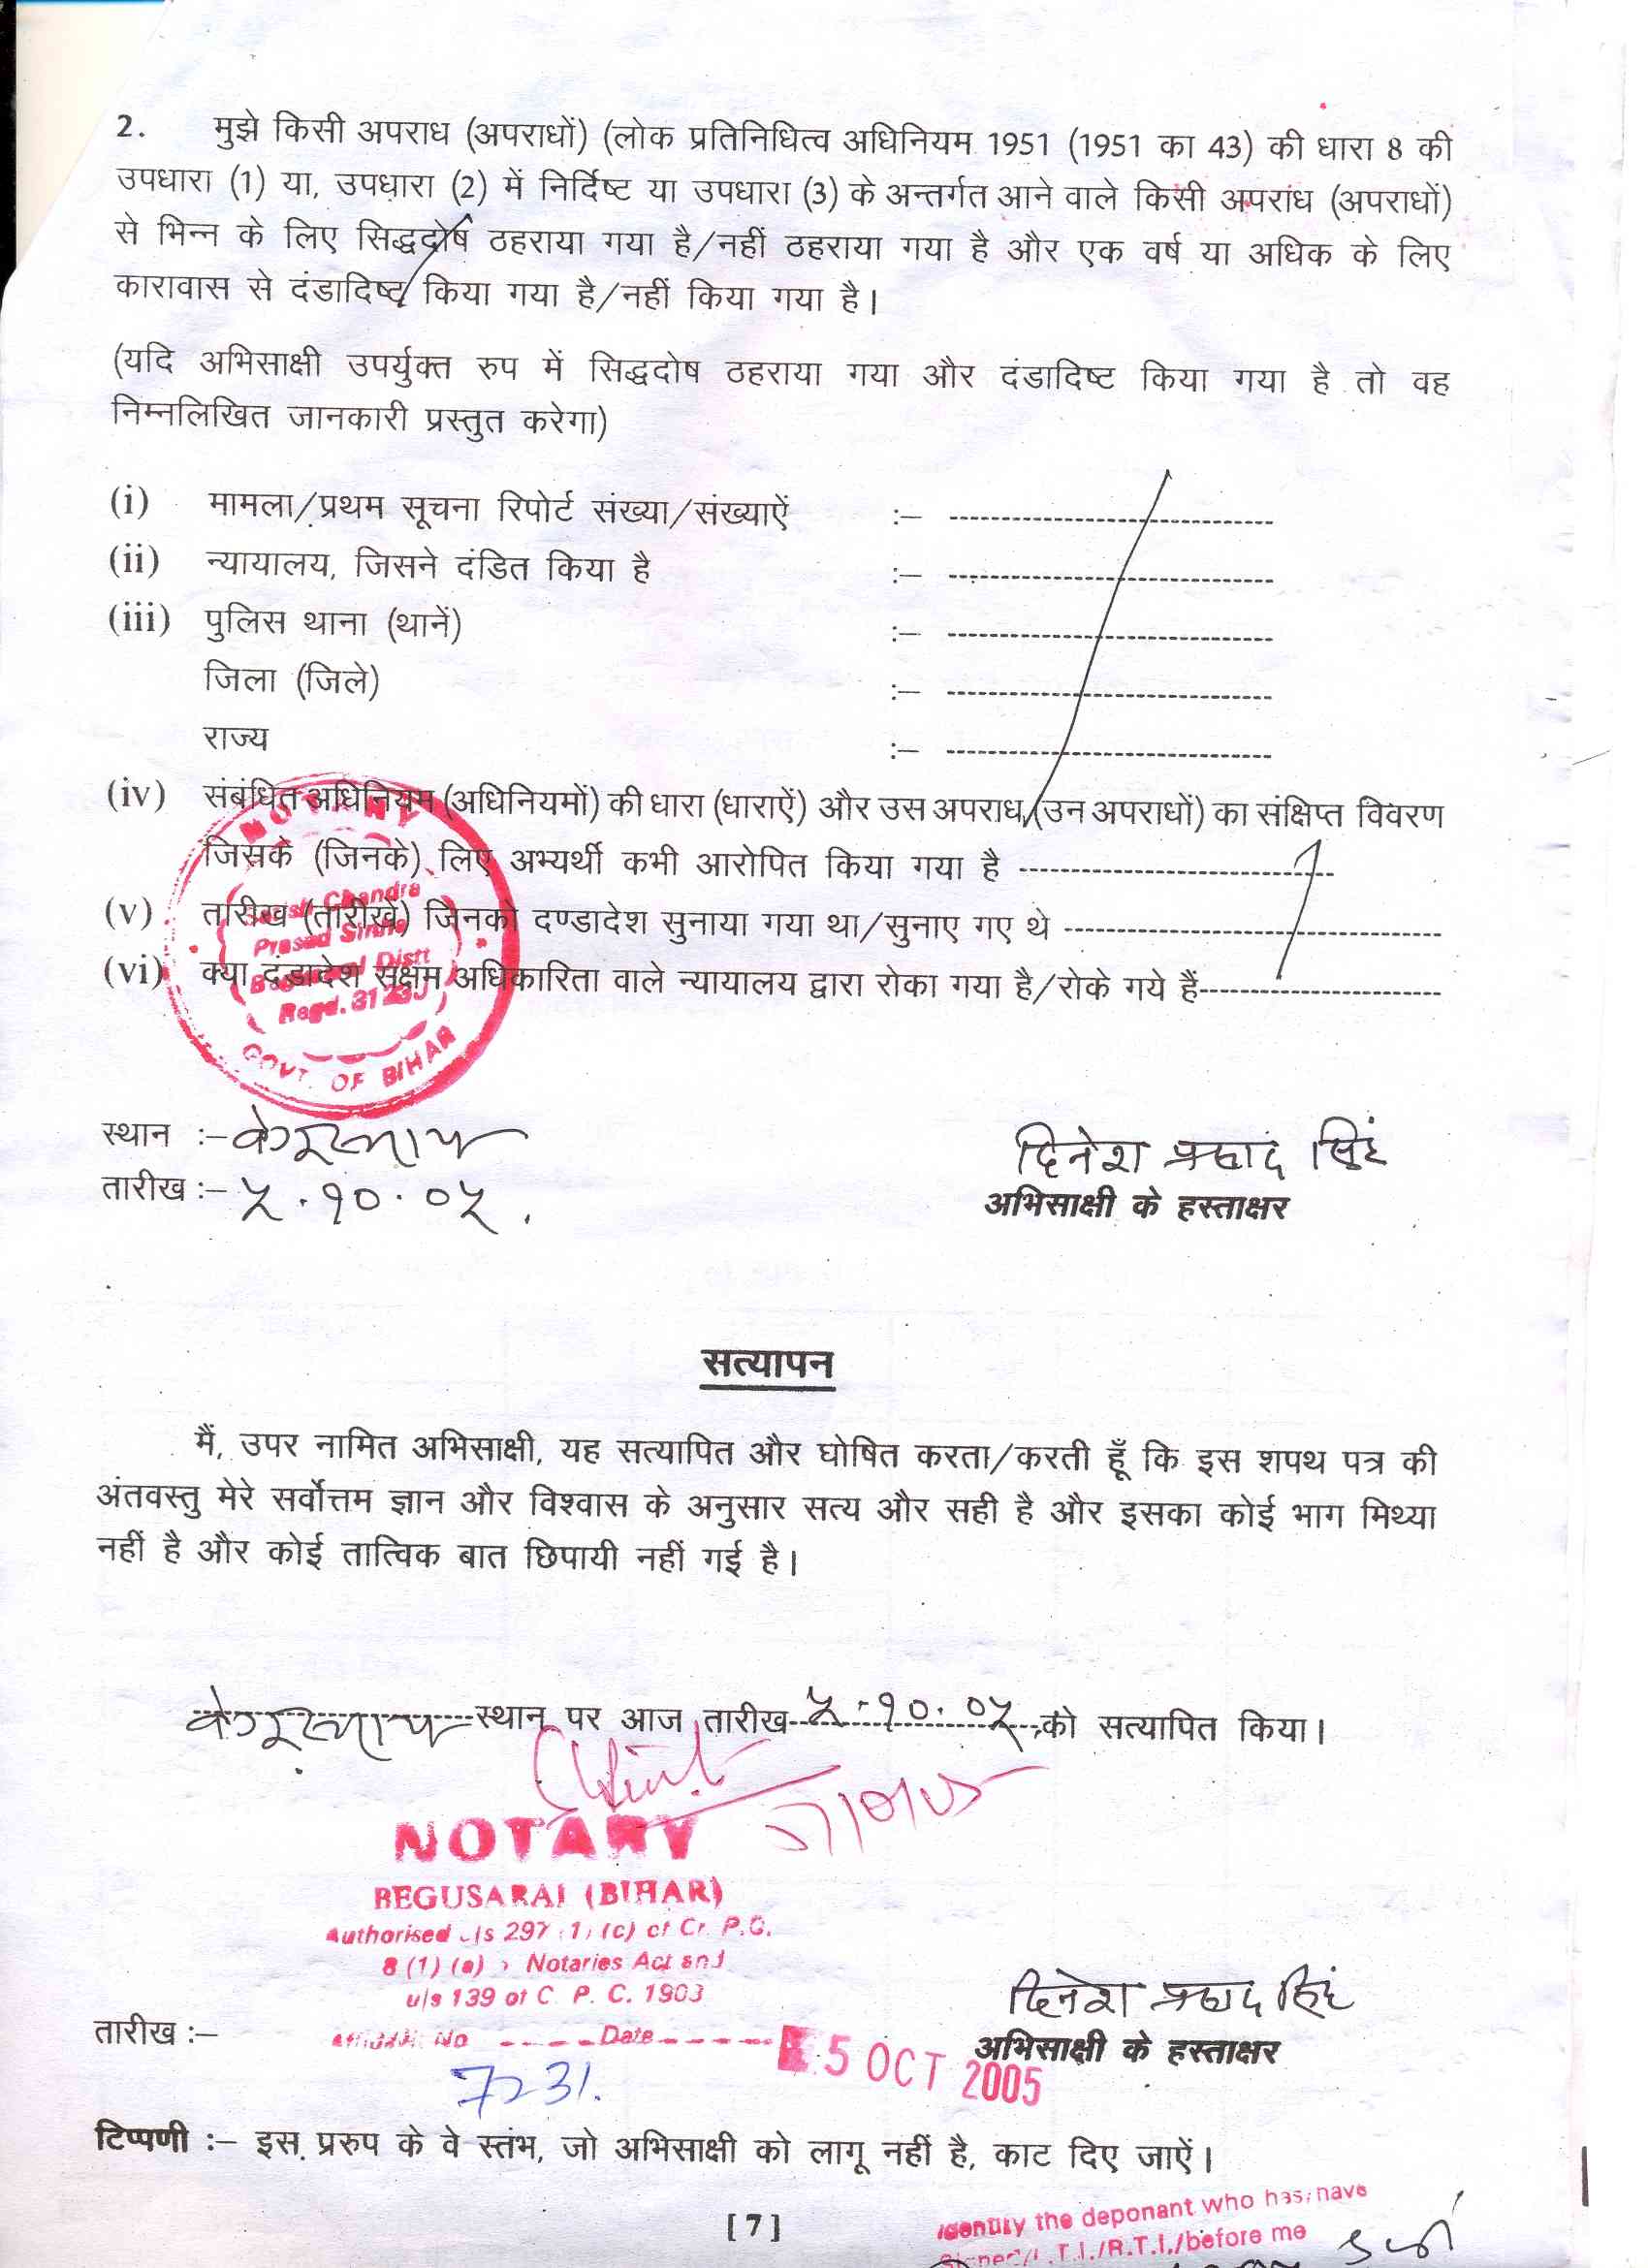 2. मुझे किसी अपराध (अपराधों) (लोक प्रतिनिधित्व अधिनियम 1951 (1951 का 43) की धारा 8 की
उपधारा (1) या, उपधारा (2) में निर्दिष्ट या उपधारा (3) के अन्तर्गत आने वाले किसी अपराध (अपराधों)
से भिन्न के लिए सिद्धदोष ठहराया गया है/नहीं ठहराया गया है और एक वर्ष या अधिक के लिए
कारावास से दंडादिष्ट किया गया है/नहीं किया गया है।
(यदि अभिसाक्षी उपर्युक्त रुप में सिद्धदोष ठहराया गया और दंडादिष्ट किया गया है तो वह
निम्नलिखित जानकारी प्रस्तुत करेगा)
(i) मामला/प्रथम सूचना रिपोर्ट संख्या/संख्याऐं :– ----------
(ii) न्यायालय, जिसने दंडित किया है :– ----------
(iii) पुलिस थाना (थानें) :– ----------
जिला (जिले) :– ----------
राज्य :– ----------
(iv) संबंधित अधिनियम (अधिनियमों) की धारा (धाराऐं) और उस अपराध (उन अपराधों) का संक्षिप्त विवरण
जिसके (जिनके) लिए अभ्यर्थी कभी आरोपित किया गया है ----------
(v) तारीख (तारीखें) जिनको दण्डादेश सुनाया गया था/सुनाए गए थे ----------
(vi) क्या दंडादेश सक्षम अधिकारिता वाले न्यायालय द्वारा रोका गया है/रोके गये हैं----------
NOTARY
Satish Chandra
Prasad Sinha
Distt
Regd. 3123
GOVT. OF BIHAR
स्थान :– बेगूसराय
दिनेश प्रसाद सिंह
तारीख :– ५.१०.०५.
अभिसाक्षी के हस्ताक्षर
सत्यापन
मैं, उपर नामित अभिसाक्षी, यह सत्यापित और घोषित करता/करती हूँ कि इस शपथ पत्र की
अंतवस्तु मेरे सर्वोत्तम ज्ञान और विश्वास के अनुसार सत्य और सही है और इसका कोई भाग मिथ्या
नहीं है और कोई तात्विक बात छिपायी नहीं गई है।
बेगूसराय स्थान पर आज तारीख ५-१०.०५ को सत्यापित किया।
NOTARY
BEGUSARAI (BIHAR)
Authorised u/s 297 (1) (c) of Cr. P.C.
8 (1) (e) Notaries Act and
u/s 139 of C. P. C. 1903
दिनेश प्रसाद सिंह
तारीख :–
Affidavit No ----- Date ------ 5 OCT 2005
अभिसाक्षी के हस्ताक्षर
7231.
टिप्पणी :– इस प्ररुप के वे स्तंभ, जो अभिसाक्षी को लागू नहीं है, काट दिए जाऐं।
[7]
Identify the deponant who has/have
Signed/L.T.I./R.T.I./before me